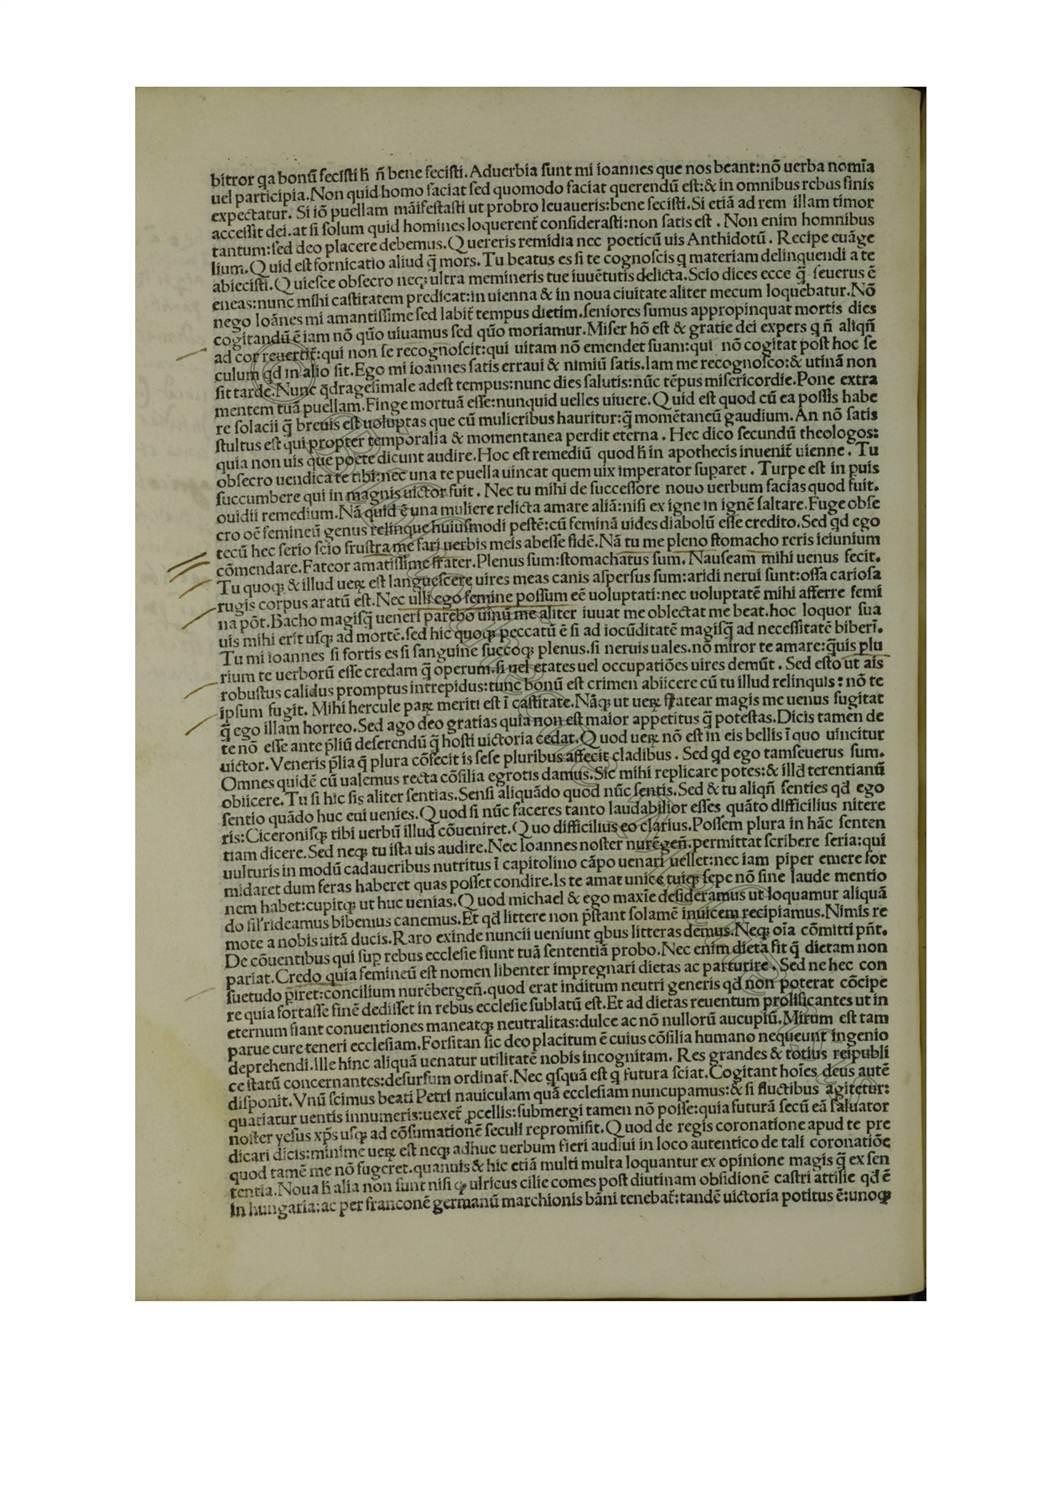 bitror qa bonū fecisti h̄ n̄ bene fecisti. Aduerbia sunt mi ioannes que nos beant: nō uerba nomīa
uel participia. Non quid homo faciat sed quomodo faciat querendū est: & in omnibus rebus finis
expectatur. Si iō puellam māifestasti ut probro leuaueris: bene fecisti. Si etiā ad rem illam timor
accessit dei. at si solum quid homines loquerent̄ considerasti: non satis est. Non enim homnibus
tantum: sed deo placere debemus. Quereris remidia nec poeticū uis Anthidotū. Recipe euāge
lium. Quid est fornicatio aliud q̄ mors. Tu beatus es si te cognoscis q materiam delinquendi a te
abiecisti. Quiesce obsecro neqꝫ ultra memineris tue iuuētutis delicta. Scio dices ecce q̄ seuerus ē
eneas: nunc mihi castitatem predicat: in uienna & in noua ciuitate aliter mecum loquebatur. Nō
nego Ioānes mi amantissime sed labit̄ tempus dietim. seniores sumus appropinquat mortis dies
cogitandū ē iam nō quō uiuamus sed quō moriamur. Miser hō est & gratie dei expers q n̄ aliqn̄
ad cor reuertit̄: qui non se recognoscit: qui uitam nō emendet suam: qui nō cogitat post hoc se
culum qd in alio sit. Ego mi ioannes satis erraui & nimiū satis. Iam me recognosco: & utinā non
sit tarde. Nunc q̄dragesimale adest tempus: nunc dies salutis: nūc tēpus misericordie. Pone extra
mentem tuā puellam. Finge mortuā esse: nunquid uelles uiuere. Quid est quod cū ea possis habe
re solacii q̄ breuis est uoluptas que cū mulieribus hauritur: q̄ momētaneū gaudium. An nō satis
stultus est qui propter temporalia & momentanea perdit eterna. Hec dico secundū theologos:
quia non uis que poete dicunt audire. Hoc est remediū quod h̄ in apothecis inuenit̄ uienne. Tu
obsecro uendica te tibi: nec una te puella uincat quem uix imperator suparet. Turpe est in puis
succumbere qui in magnis uictor fuit. Nec tu mihi de successore nouo uerbum facias quod fuit.
ouidii remedium. Nā quid ē una muliere relicta amare aliā: nisi ex igne in ignē saltare. Fuge obse
cro oē femineū genus relinque huiusmodi pestē: cū feminā uides diabolū esse credito. Sed qd ego
tecū hec serio scio frustra me fari uerbis meis abesse fidē. Nā tu me pleno stomacho reris ieiunium
cōmendare. Fateor amatissime frater. Plenus sum: stomachatus sum. Nauseam mihi uenus fecit.
Tu quoqꝫ & illud ueꝝ est languescere uires meas canis aspersus sum: aridi nerui sunt: ossa cariosa
rugis corpus aratū est. Nec ulli ego femine possum eē uoluptati: nec uoluptatē mihi afferre femi
na pōt. Bacho magisq̄ ueneri parebo uinū me aliter iuuat me oblectat me beat. hoc loquor sua
uis mihi erit usqꝫ ad mortē. sed hic quoqꝫ peccatū ē si ad iocūditatē magisq̄ ad necessitatē biberī.
Tu mi ioannes si fortis es si sanguine succoqꝫ plenus. si neruis uales. nō miror te amare: q̄uis plu
rium te uerborū esse credam q̄ operum. si uel etates uel occupatiōes uires demūt. Sed esto ut ais
robustus calidus promptus intrepidus: tunc bonū est crimen abiicere cū tu illud relinquis: nō te
ipsum fugit. Mihi hercule paꝝ meriti est ī castitate. Nāqꝫ ut ueꝝ fatear magis me uenus fugitat
q̄ ego illam horreo. Sed ago deo gratias quia non est maior appetitus q̄ potestas. Dicis tamen de
te nō esse ante p̄liū deferendū q̄ hosti uictoria cedat. Quod ueꝝ nō est in eis bellis ī quo uincitur
uictor. Veneris p̄lia q̄ plura cōfecit is sese pluribus affecit cladibus. Sed qd ego tamseuerus sum.
Omnes quidē cū ualemus recta cōsilia egrotis damus. Sic mihi replicare potes: & illd̄ terentianū
obiicere. Tu si hic sis aliter sentias. Sensi aliquādo quod nūc sentis. Sed & tu aliqn̄ senties qd ego
sentio quādo huc eui uenies. Quod si nūc faceres tanto laudabilior esses quāto difficilius nitere
ris: Ciceronisqꝫ tibi uerbū illud cōueniret. Quo difficilius eo clarius. Possem plura in hāc senten
tiam dicere. Sed neqꝫ tu ista uis audire. Nec Ioannes noster nurēgen̄. permittat scribere seria: qui
uulturis in modū cadaueribus nutritus ī capitolino cāpo uenari uellet: nec iam piper emere for
midaret dum feras haberet quas posset condire. Is te amat unice tuiqꝫ sepe nō sine laude mentio
nem habet: cupitqꝫ ut huc uenias. Quod michael & ego maxīe desideramus ut loquamur aliquā
do sīl rideamus bibemus canemus. Et qd littere non p̄stant solamē inuicem recipiamus. Nimis re
mote a nobis uitā ducis. Raro exinde nuncii ueniunt qbus litteras demus. Neqꝫ oīa cōmitti pn̄t.
De cōuentibus qui sup rebus ecclesie fiunt tuā sententiā probo. Nec enim dieta fit q̄ dietam non
pariat. Credo quia femineū est nomen libenter impregnari dietas ac parturire. Sed ne hec con
suetudo piret: concilium nurēbergen̄. quod erat inditum neutri generis qd non poterat cōcipe
re quia fortasse finē dedisset in rebus ecclesie sublatū est. Et ad dietas reuentum prolificantes ut in
eternum fiant conuentiones maneatqꝫ neutralitas: dulce ac nō nullorū aucupiū. Mirum est tam
parue cure teneri ecclesiam. Forsitan sic deo placitum ē cuius cōsilia humano nequeunt ingenio
deprehendi. Ille hinc aliquā uenatur utilitatē nobis incognitam. Res grandes & totius reipubli
ce statū concernantes: desursum ordinat̄. Nec qsquā est q futura sciat. Cogitant hoīes deus autē
disponit. Vnū scimus beati Petri nauiculam quā ecclesiam nuncupamus: & si fluctibus agitetur:
quatiatur uentis innumeris: uexet̄ pcellis: submergi tamen nō posse: quia futurā secū eā saluator
noster yesus xp̄s usqꝫ ad cōsumationē seculi repromisit. Quod de regis coronatione apud te pre
dicari dicis: minime ueꝝ est neqꝫ adhuc uerbum fieri audiui in loco autentico de tali coronatiōe
quod tamē me nō fugeret. quanuis & hic etiā multi multa loquantur ex opinione magis q̄ ex sen
tentia. Noua h̄ alia non sunt nisi qꝫ ulricus cilie comes post diutinam obsidionē castri attilie qd ē
in hungaria: ac per franconē germanū marchionis bāni tenebat̄: tandē uictoria potitus ē: unoqꝫ